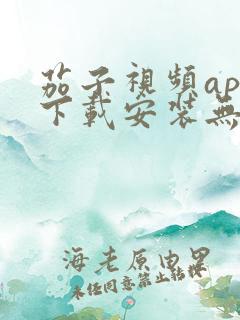 茄子視頻ap
下載安裝無
海老原由里
未任同意禁止转栽